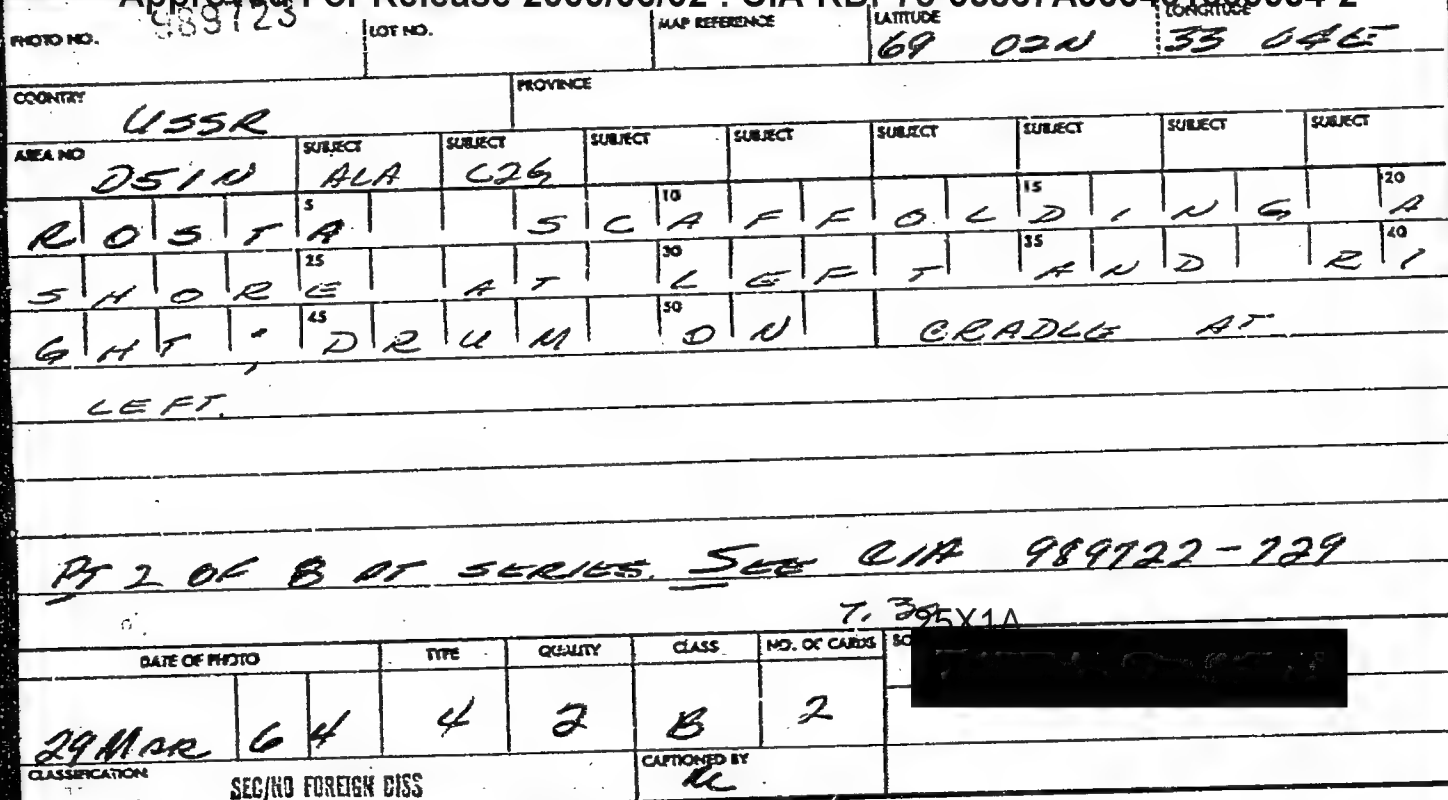 Approved For Release 2000/06/02 : CIA-RDP
PHOTO NO. 989723 LOT NO. MAP REFERENCE LATITUDE 69 02N LONGITUDE 33 04E
COUNTRY USSR PROVINCE
AREA NO D51N SUBJECT ALA SUBJECT C2G SUBJECT SUBJECT SUBJECT SUBJECT SUBJECT SUBJECT
5 10 15 20
ROSTA SCAFFOLDING A
25 30 35 40
SHORE AT LEFT AND RI
45 50
GHT; DRUM ON CRADLE AT
LEFT.
PT 2 OF 8 PT SERIES. SEE CIA 989722-729
25X1A
DATE OF PHOTO TYPE QUALITY CLASS NO. OF CARDS
29 MAR 64 4 2 B 2
CLASSIFICATION SEC/NO FOREIGN DISS CAPTIONED BY